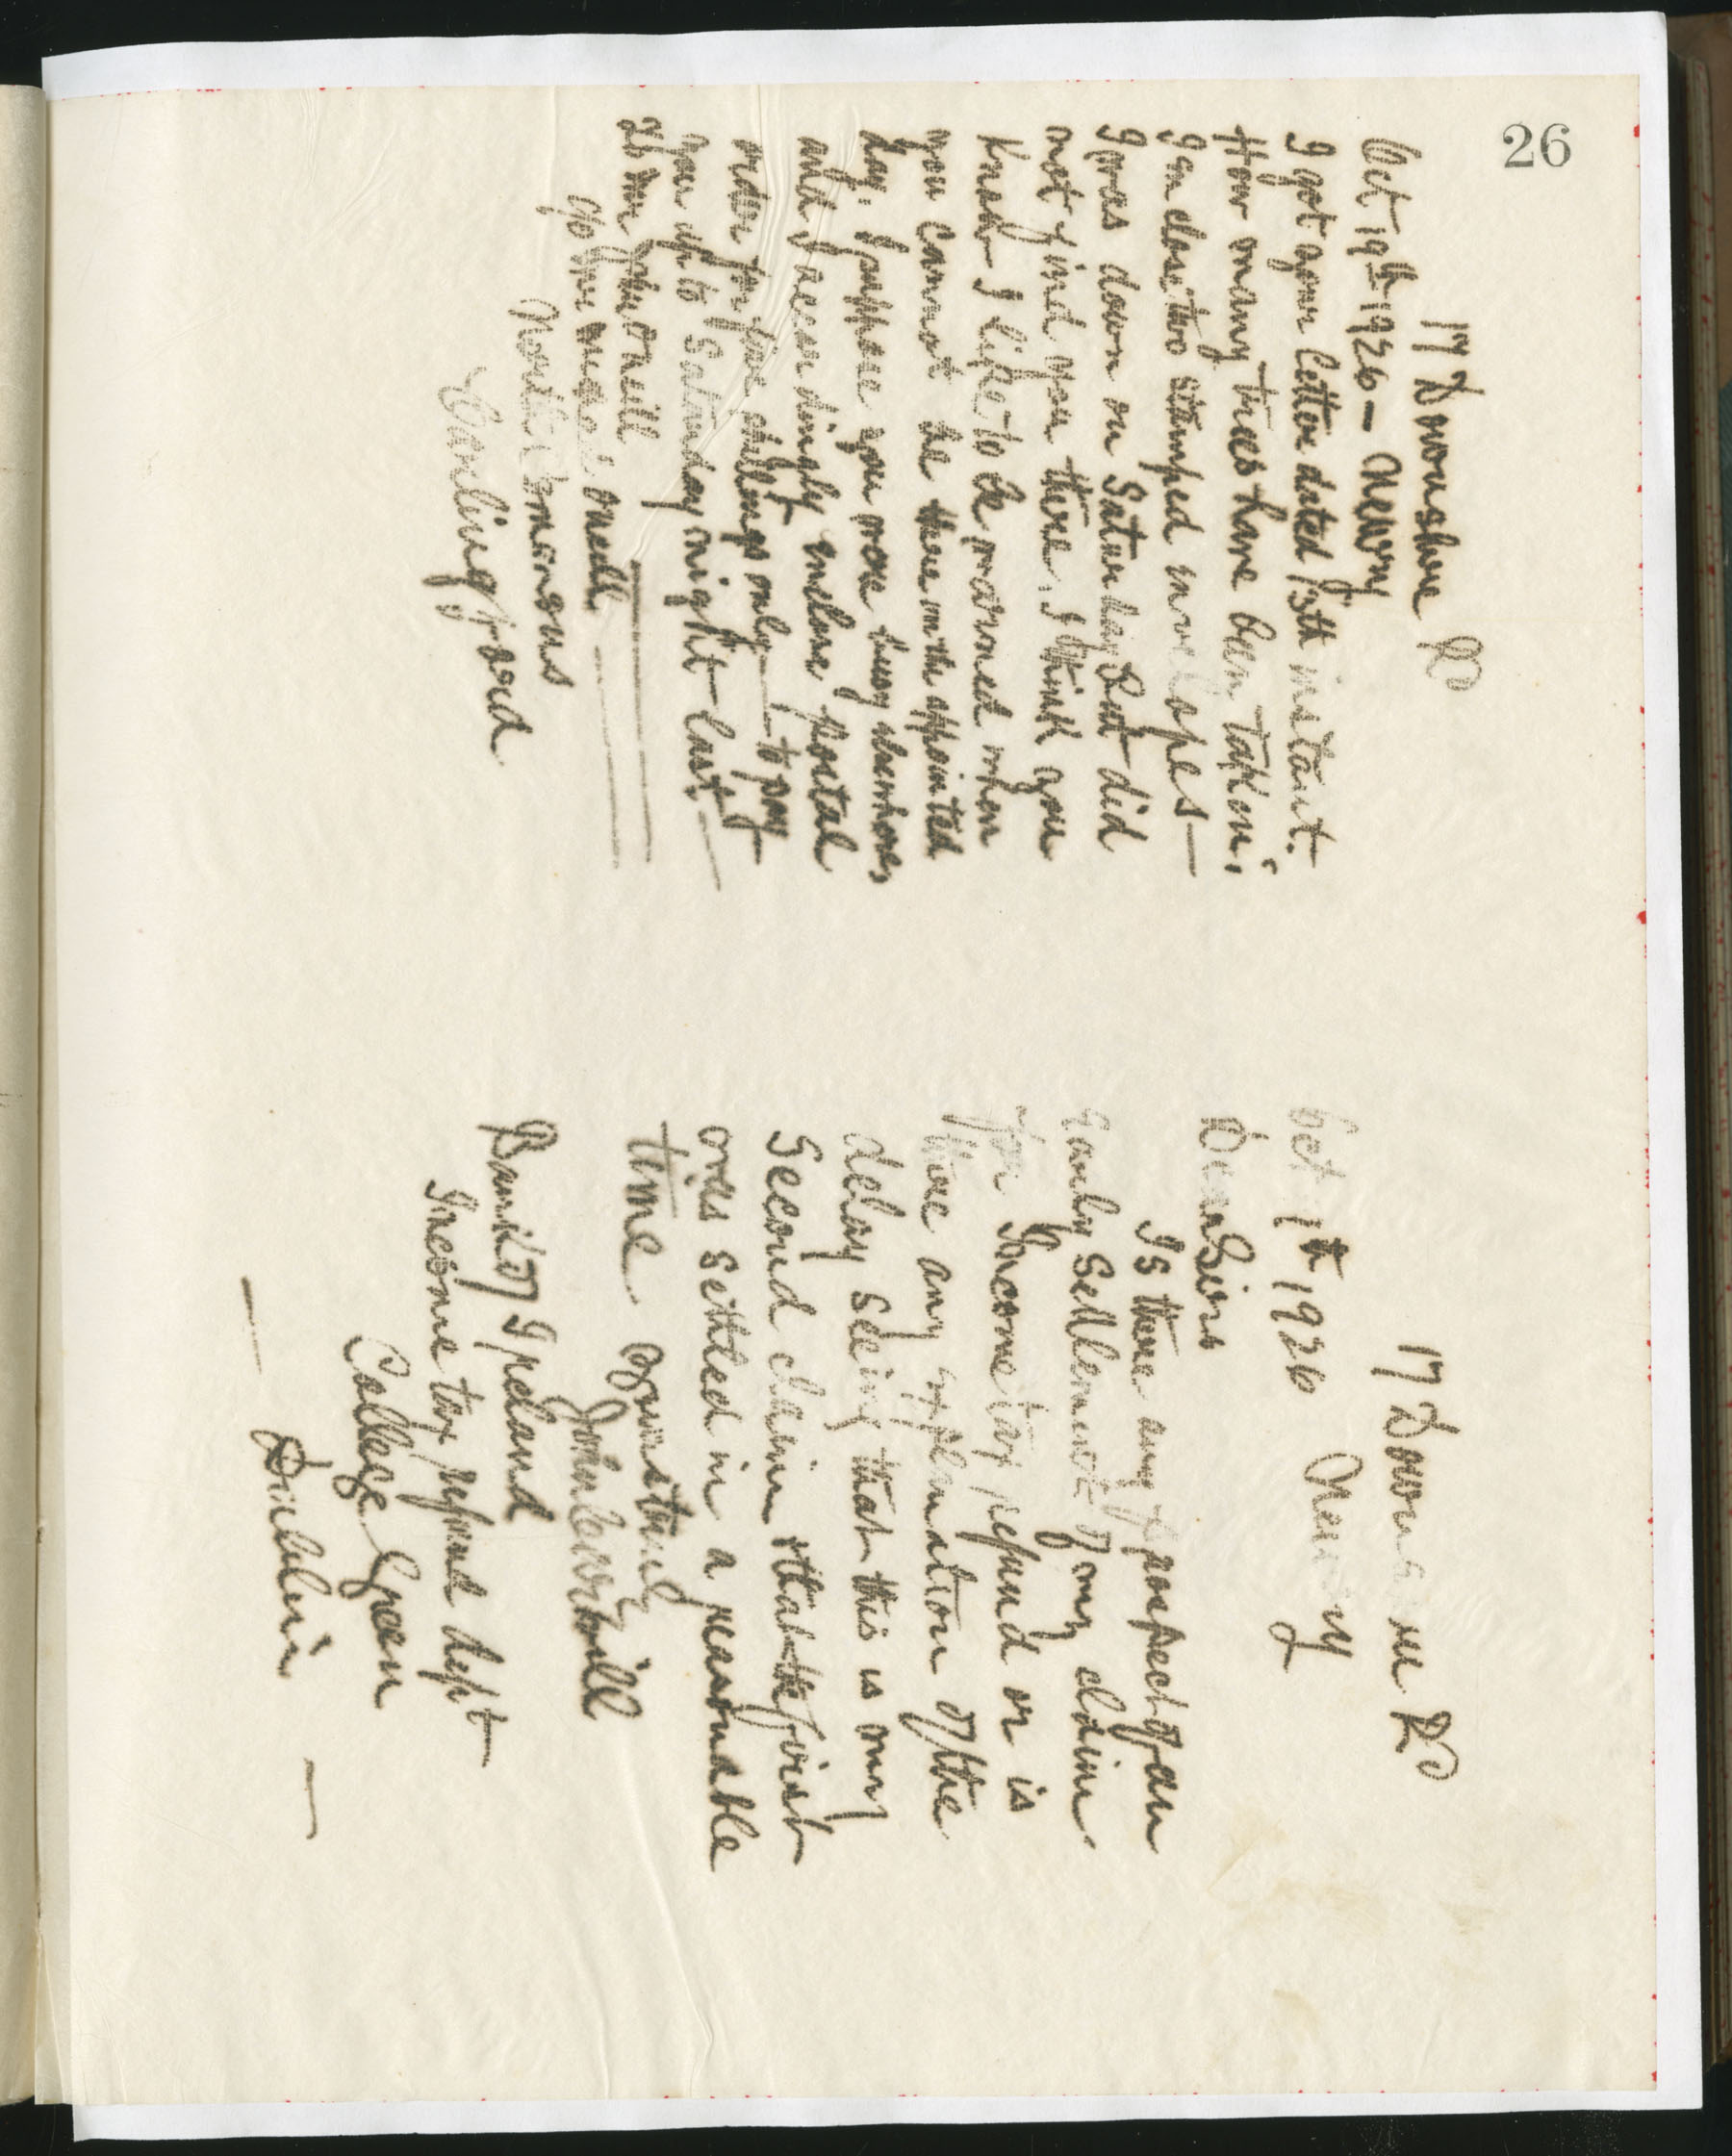 26
17 Downshire Rd
Oct 19th 1926 — Newry
I got your letter dated 13th instant.
How many trees have been taken.
I enclose two stamped envelopes —
I was down on Saturday But did
not find you there. I think you
know I like to be warned when
you cannot be there on the appointed
day. I suppose you were busy elsewhere
and I accordingly enclose postal
order for five shillings only — to pay
you up to Saturday night last. —
To Mr John oneill
c/o
North Commons
Carlingford
17 Downs re Rd
Oct 1th 1926 Newry
Dear Sirs
Is there any prospect of an
early settlement of my claim
for Income tax refund or is
there any explanation of the
delay seeing that this is my
Second claim & that the first
was settled in a reasonable
time yours truly
John
Bank of Ireland
Income tax refund dept
College Green
Dublin